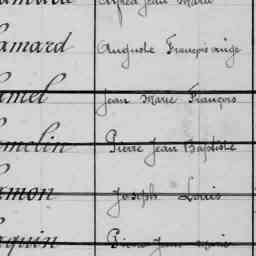 Alfred Jean Marie
amard Auguste François ange
amel Jean Marie François
melin Pierre Jean Baptiste
mon Joseph Louis
quin Pierre Jean Marie